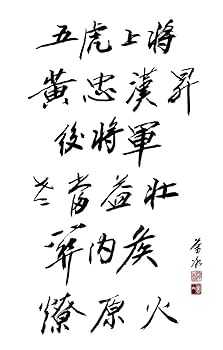 五虎上將
黃忠漢昇
後將軍
老當益壯
關內侯
燎原火